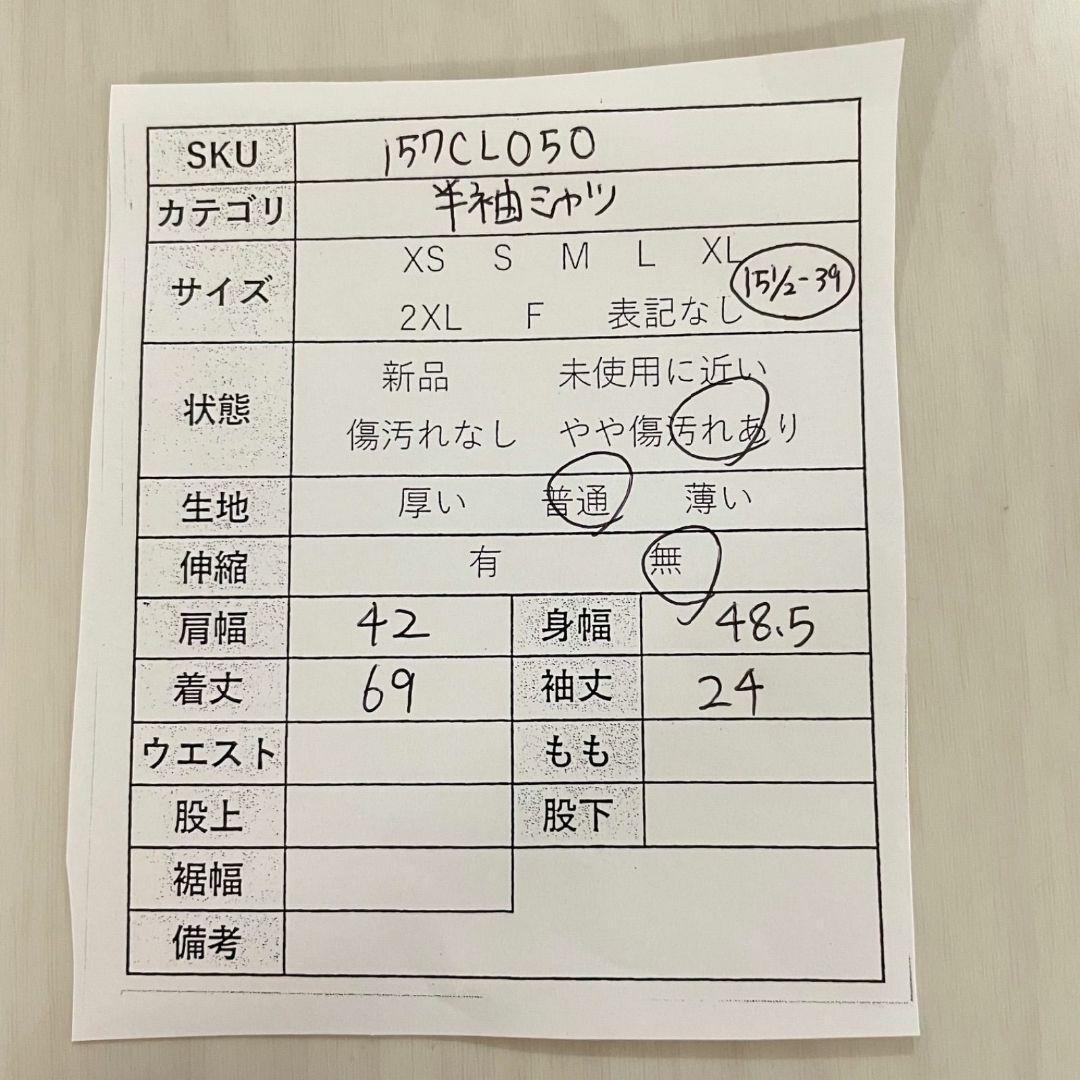 SKU 157CL050
カテゴリ 半袖シャツ
サイズ XS S M L XL
2XL F 表記なし 15½-39
状態 新品 未使用に近い
傷汚れなし やや傷汚れあり
生地 厚い 普通 薄い
伸縮 有 無
肩幅 42 身幅 48.5
着丈 69 袖丈 24
ウエスト もも
股上 股下
裾幅
備考